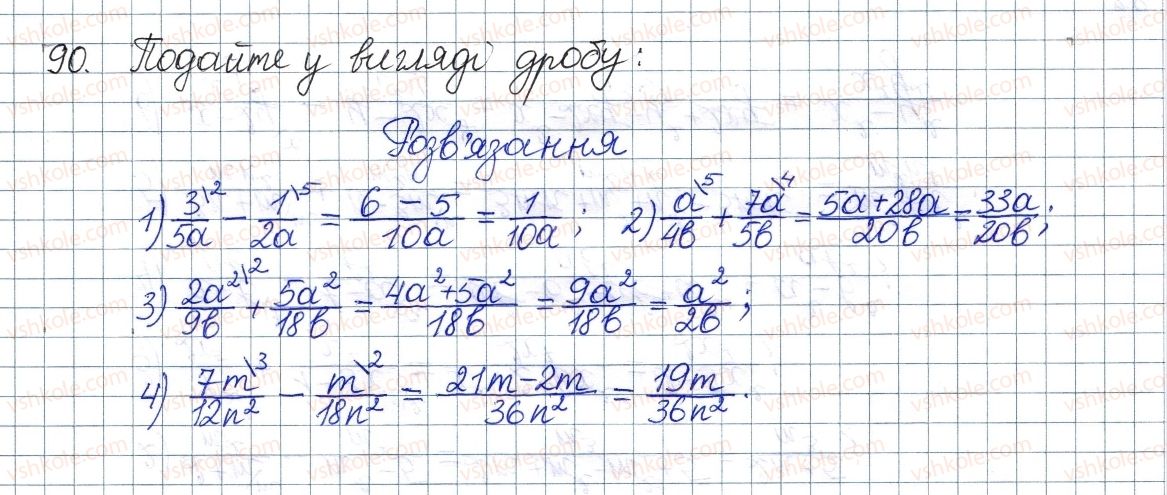 90. Подайте у вигляді дробу:
Розв'язання
1) 3\2/5a − 1\5/2a = 6 − 5/10a = 1/10a; 2) a\5/4b + 7a\4/5b = 5a+28a/20b = 33a/20b;
3) 2a²\2/9b + 5a²/18b = 4a²+5a²/18b = 9a²/18b = a²/2b;
4) 7m\3/12n² − m\2/18n² = 21m−2m/36n² = 19m/36n².
vshkole.com